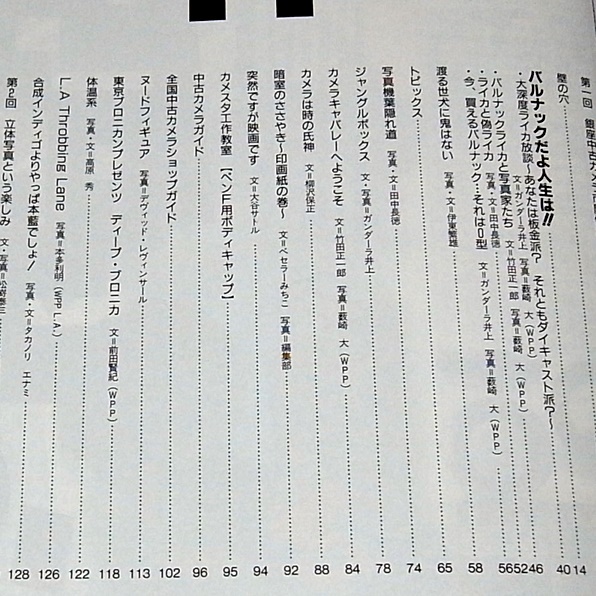 第一回 銀座中古カメラ 14
壁の穴 40
バルナックだよ人生は!!
・大深度ライカ放談～あなたは板金派? それともダイキャスト派?～
文=ガンダーラ井上 写真=薮崎 大(WPP) 46
・バルナックライカと写真家たち 文=竹田正一郎 写真=薮崎 大(WPP) 52
・ライカと偽ライカ 写真・文=田中長徳 56
・今、買えるバルナック…それはⅡ型 文=ガンダーラ井上 写真=薮崎 大(WPP) 58
渡る世犬に鬼はない 写真・文=伊東繁雄 65
トピックス 74
写真機葉隠れ道 写真・文=田中長徳 78
ジャングルボックス 文・写真=ガンダーラ井上 84
カメラキャバレーへようこそ 文=竹田正一郎 写真=薮崎 大(WPP) 84
カメラは時の氏神 文=柳沢保正 88
暗室のささやき～印画紙の巻～ 文=ペセラーみちこ 写真=編集部 92
突然ですが映画です 文=大谷サトル 94
カメスタ工作教室 【ペンF用ボディキャップ】 95
中古カメラガイド 96
全国中古カメラショップガイド 102
ヌードフィギュア 写真=デヴィッド・レヴィンサール 113
東京ブロニカンプレゼンツ ディープ・ブロニカ 文=前田賢紀(WPP) 118
体温系 写真・文=高原 秀 122
L.A Throbbing Lane 写真=本多利明(WPP L.A.)
合成インディゴよりやっぱ本藍でしょ! 写真・文=タカノリ エナミ 126
第2回 立体写真という楽しみ 文・写真= 128